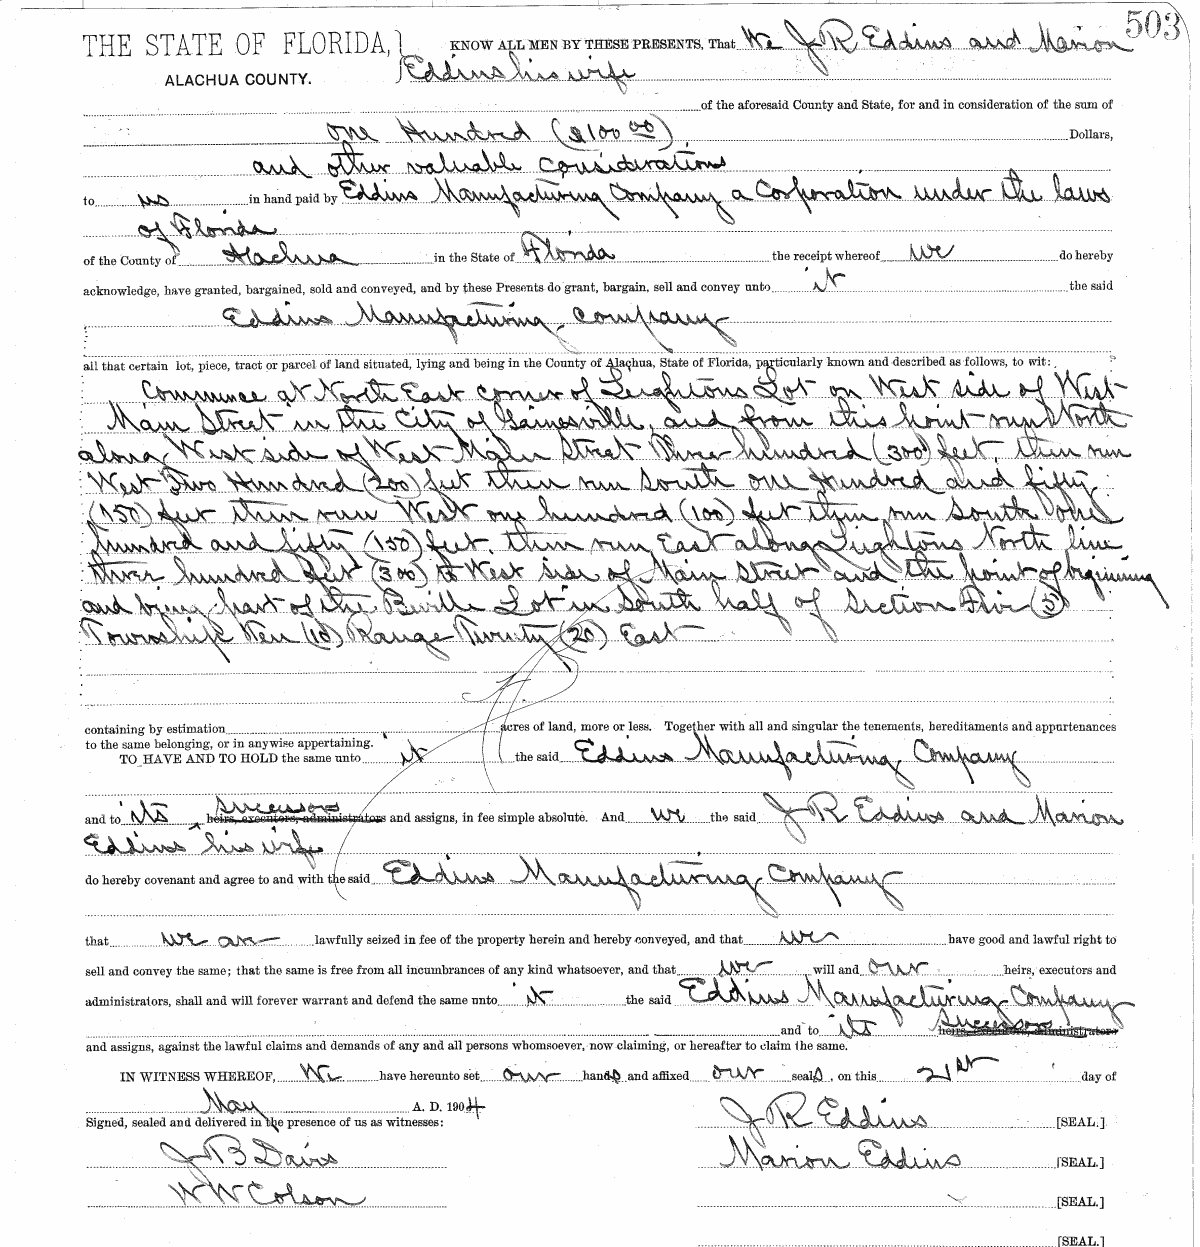 503
THE STATE OF FLORIDA,} KNOW ALL MEN BY THESE PRESENTS, That We J R Eddins and Marion
ALACHUA COUNTY. Eddins his wife
of the aforesaid County and State, for and in consideration of the sum of
one Hundred ($100 00) Dollars,
and other valuable considerations
to us in hand paid by Eddins Manufacturing Company a Corporation under the laws
of Florida
of the County of Alachua in the State of Florida the receipt whereof we do hereby
acknowledge, have granted, bargained, sold and conveyed, and by these Presents do grant, bargain, sell and convey unto it the said
Eddins Manufacturing Company
all that certain lot, piece, tract or parcel of land situated, lying and being in the County of Alachua, State of Florida, particularly known and described as follows, to wit:
Commence at North East corner of Leightons Lot on West side of West
Main Street in the City of Gainesville, and from this point run North
along West side of West Main Street Three hundred (300) feet, then run
West Two Hundred (200) feet then run South one Hundred and fifty
(150) feet then run West one hundred (100) feet then run South one
hundred and fifty (150) feet, then run East along Leightons North line
three hundred feet (300) to West side of Main Street and the point of beginning
and being part of the Beville Lot in South half of Section Five (5)
Township Ten (10) Range Twenty (20) East
containing by estimation acres of land, more or less. Together with all and singular the tenements, hereditaments and appurtenances
to the same belonging, or in anywise appertaining.
TO HAVE AND TO HOLD the same unto it the said Eddins Manufacturing Company
and to its successors heirs, executors, administrators and assigns, in fee simple absolute. And we the said J R Eddins and Marion
Eddins his wife
do hereby covenant and agree to and with the said Eddins Manufacturing Company
that we are lawfully seized in fee of the property herein and hereby conveyed, and that we have good and lawful right to
sell and convey the same; that the same is free from all incumbrances of any kind whatsoever, and that we will and our heirs, executors and
administrators, shall and will forever warrant and defend the same unto it the said Eddins Manufacturing Company
and to its successors heirs, executors, administrators
and assigns, against the lawful claims and demands of any and all persons whomsoever, now claiming, or hereafter to claim the same.
IN WITNESS WHEREOF, We have hereunto set our hands and affixed our seals, on this 21st day of
May A. D. 1904
Signed, sealed and delivered in the presence of us as witnesses: J R Eddins [SEAL.]
J B Davis Marion Eddins [SEAL.]
W W Colson [SEAL.]
[SEAL.]